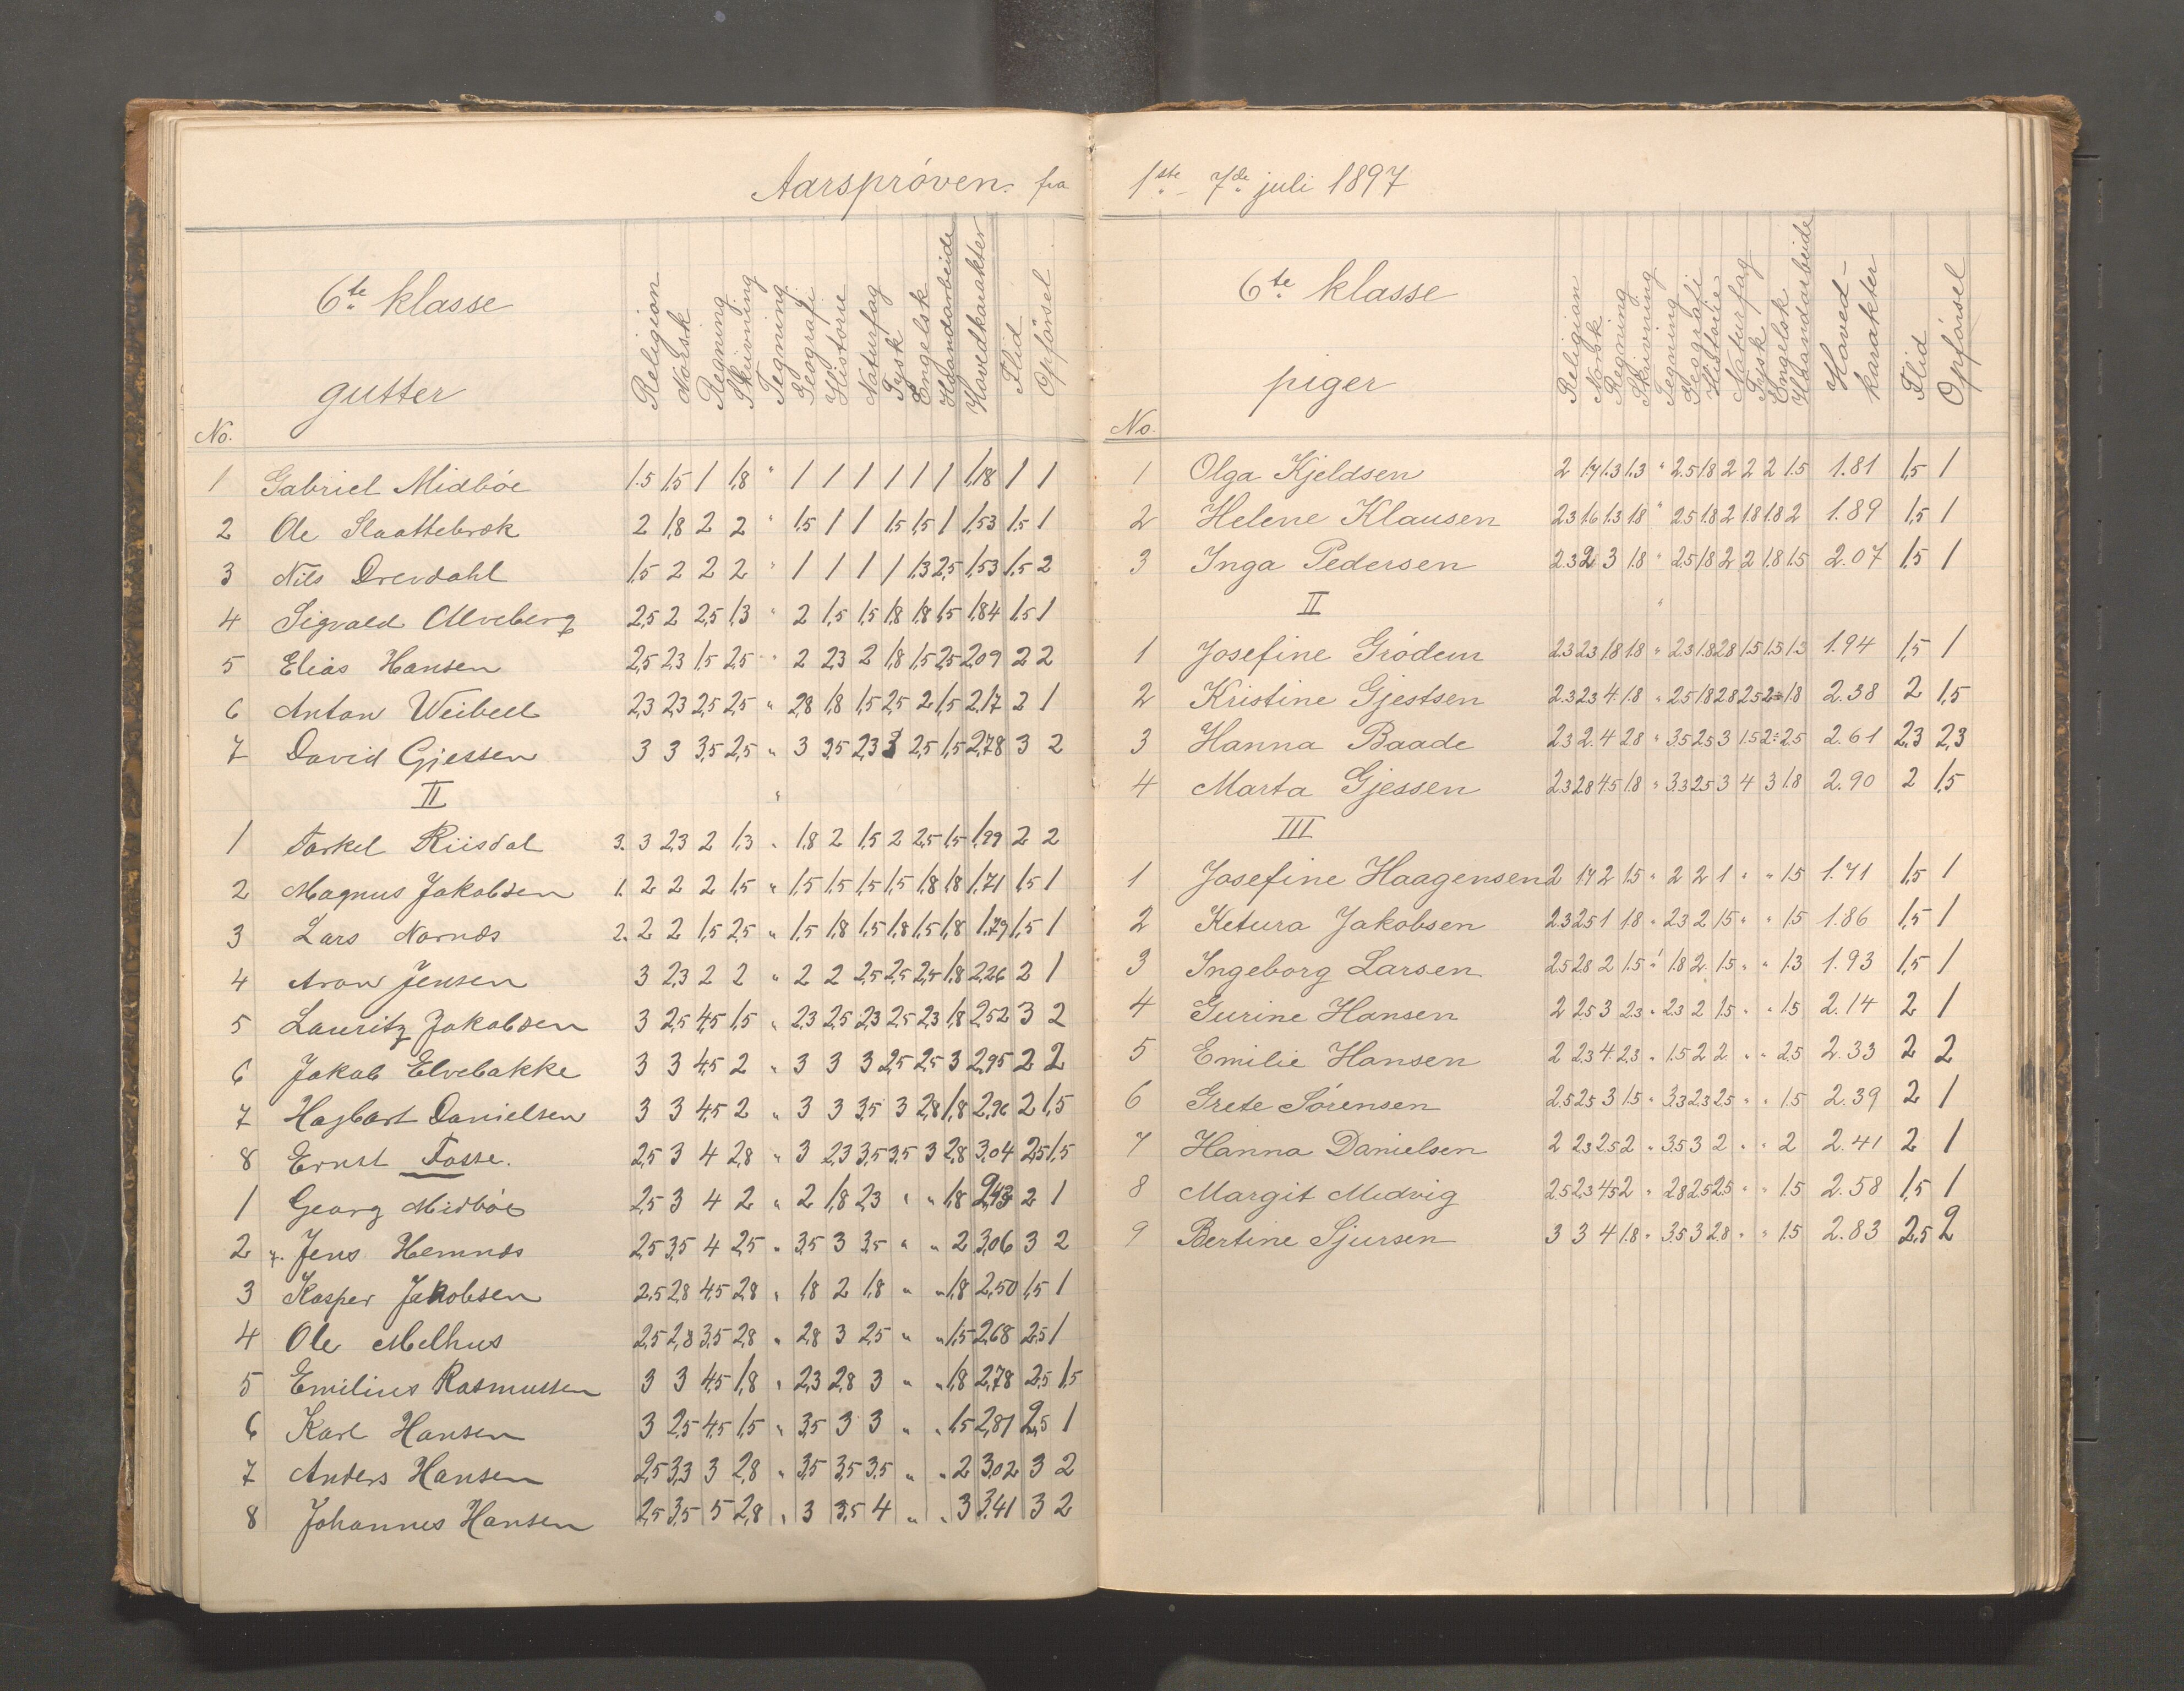 Aarsprøven fra
6te klasse
gutter
No. Religion Norsk Regning Skrivning Tegning Geografi Historie Naturfag Tysk Engelsk Haandarbeide Hovedkarakter Flid Opførsel
1 Gabriel Midbøe 1.5 1,5 1 1,8 " 1 1 1 1 1 1 1,18 1 1
2 Ole Slaattebrok 2 1,8 2 2 " 1,5 1 1 1,5 1,5 1 1,53 1,5 1
3 Nils Drevdahl 1,5 2 2 2 " 1 1 1 1 1,3 2,5 1,53 1,5 2
4 Sigvald Alveberg 2,5 2 2,5 1,3 " 2 1,5 1,5 1,8 1,8 1,5 1,84 1,5 1
5 Elias Hansen 2,5 2,3 1,5 2,5 " 2 2,3 2 1,8 1,5 2,5 2,09 2 2
6 Anton Weibell 2,3 2,3 2,5 2,5 " 2,8 1,8 1,5 2,5 2 1,5 2,17 2 1
7 David Gjessen 3 3 3,5 2,5 " 3 3,5 2,3 3 2,5 1,5 2,78 3 2
II "
1 Torkel Riisdal 3. 3 2,3 2 1,3 " 1,8 2 1,5 2 2,5 1,5 1,99 2 2
2 Magnus Jakobsen 1. 2 2 2 1,5 " 1,5 1,5 1,5 1,5 1,8 1,8 1,71 1,5 1
3 Lars Nornes 2. 2 2 1,5 2,5 " 1,5 1,8 1,5 1,8 1,5 1,8 1,79 1,5 1
4 Aron Jensen 3 2,3 2 2 " 2 2 2,5 2,5 2,5 1,8 2,26 2 1
5 Lauritz Jakobsen 3 2,5 4,5 1,5 " 2,3 2,5 2,3 2,5 2,3 1,8 2,52 3 2
6 Jakob Elvebakke 3 3 4,5 2 " 3 3 3 2,5 2,5 3 2,95 2 2
7 Hagbart Danielsen 3 3 4,5 2 " 3 3 3,5 3 2,8 1,8 2,96 2 1,5
8 Ernst Tosse. 2,5 3 4 2,8 " 3 2,3 3,5 3,5 3 2,8 3,04 2,5 1,5
1 Georg Midbøe 2,5 3 4 2 " 2 1,8 2,3 " " 1,8 2,43 2 1
2 Jens Hemnes 2,5 3,5 4 2,5 " 3,5 3 3,5 " " 2 3,06 3 2
3 Kasper Jakobsen 2,5 2,8 4,5 2,8 " 1,8 2 1,8 " " 1,8 2,50 1,5 1
4 Ole Melhus 2,5 2,8 3,5 2,8 " 2,8 3 2,5 " " 1,5 2,68 2,5 1
5 Emilius Rasmussen 3 3 4,5 1,8 " 2,3 2,8 3 " " 1,8 2,78 2,5 1,5
6 Karl Hansen 3 2,5 4,5 1,5 " 3,5 3 3 " " 1,5 2,81 2,5 1
7 Anders Hansen 2,5 3,3 3 2,8 " 3,5 3,5 3,5 " " 2 3,02 3 2
8 Johannes Hansen 2,5 3,5 5 2,8 " 3 3,5 4 " " 3 3,41 3 2
1ste - 7de juli 1897
6te klasse
piger
No. Religion Norsk Regning Skrivning Tegning Geografi Historie Naturfag Tysk Engelsk Haandarbeide Hoved-karakter Flid Opførsel
1 Olga Kjeldsen 2 1.7 1.3 1.3 " 2.5 1.8 2 2 2 1.5 1.81 1,5 1
2 Helene Klausen 2.3 1.6 1.3 1.8 " 2.5 1.8 2 1.8 1.8 2 1.89 1,5 1
3 Inga Pedersen 2.3 2 3 1.8 " 2.5 1.8 2 2 1.8 1.5 2.07 1,5 1
II "
1 Josefine Grødem 2.3 2.3 1.8 1.8 " 2.3 1.8 2.8 1.5 1.5 1.3 1.94 1,5 1
2 Kristine Gjestsen 2.3 2.3 4 1.8 " 2.5 1.8 2.8 2.5 2 1.8 2.38 2 1,5
3 Hanna Baade 2.3 2. 4 2.8 " 3.5 2.5 3 1.5 2 2.5 2.61 2,3 2,3
4 Marta Gjessen 2.3 2.8 4.5 1.8 " 3.3 2.5 3 4 3 1.8 2.90 2 1,5
III
1 Josefine Haagensen 2 1.7 2 1.5 " 2 2 1 " " 1.5 1.71 1,5 1
2 Ketura Jakobsen 2.3 2.5 1 1.8 " 2.3 2 1.5 " " 1.5 1.86 1,5 1
3 Ingeborg Larsen 2.5 2.8 2 1.5 " 1.8 2 1.5 " " 1.3 1.93 1,5 1
4 Gurine Hansen 2 2.5 3 2.3 " 2.3 2 1.5 " " 1.5 2.14 2 1
5 Emilie Hansen 2 2.3 4 2.3 " 1.5 2 2 " " 2.5 2.33 2 2
6 Grete Sørensen 2.5 2.5 3 1.5 " 3.3 2.3 2.5 " " 1.5 2.39 2 1
7 Hanna Danielsen 2 2.3 2.5 2 " 3.5 3 2 " " 2 2.41 2 1
8 Margit Medvig 2.5 2.3 4.5 2 " 2.8 2.5 2.5 " " 1.5 2.58 1,5 1
9 Bertine Sjursen 3 3 4 1.8 " 3.5 3 2.8 " " 1.5 2.83 2,5 2